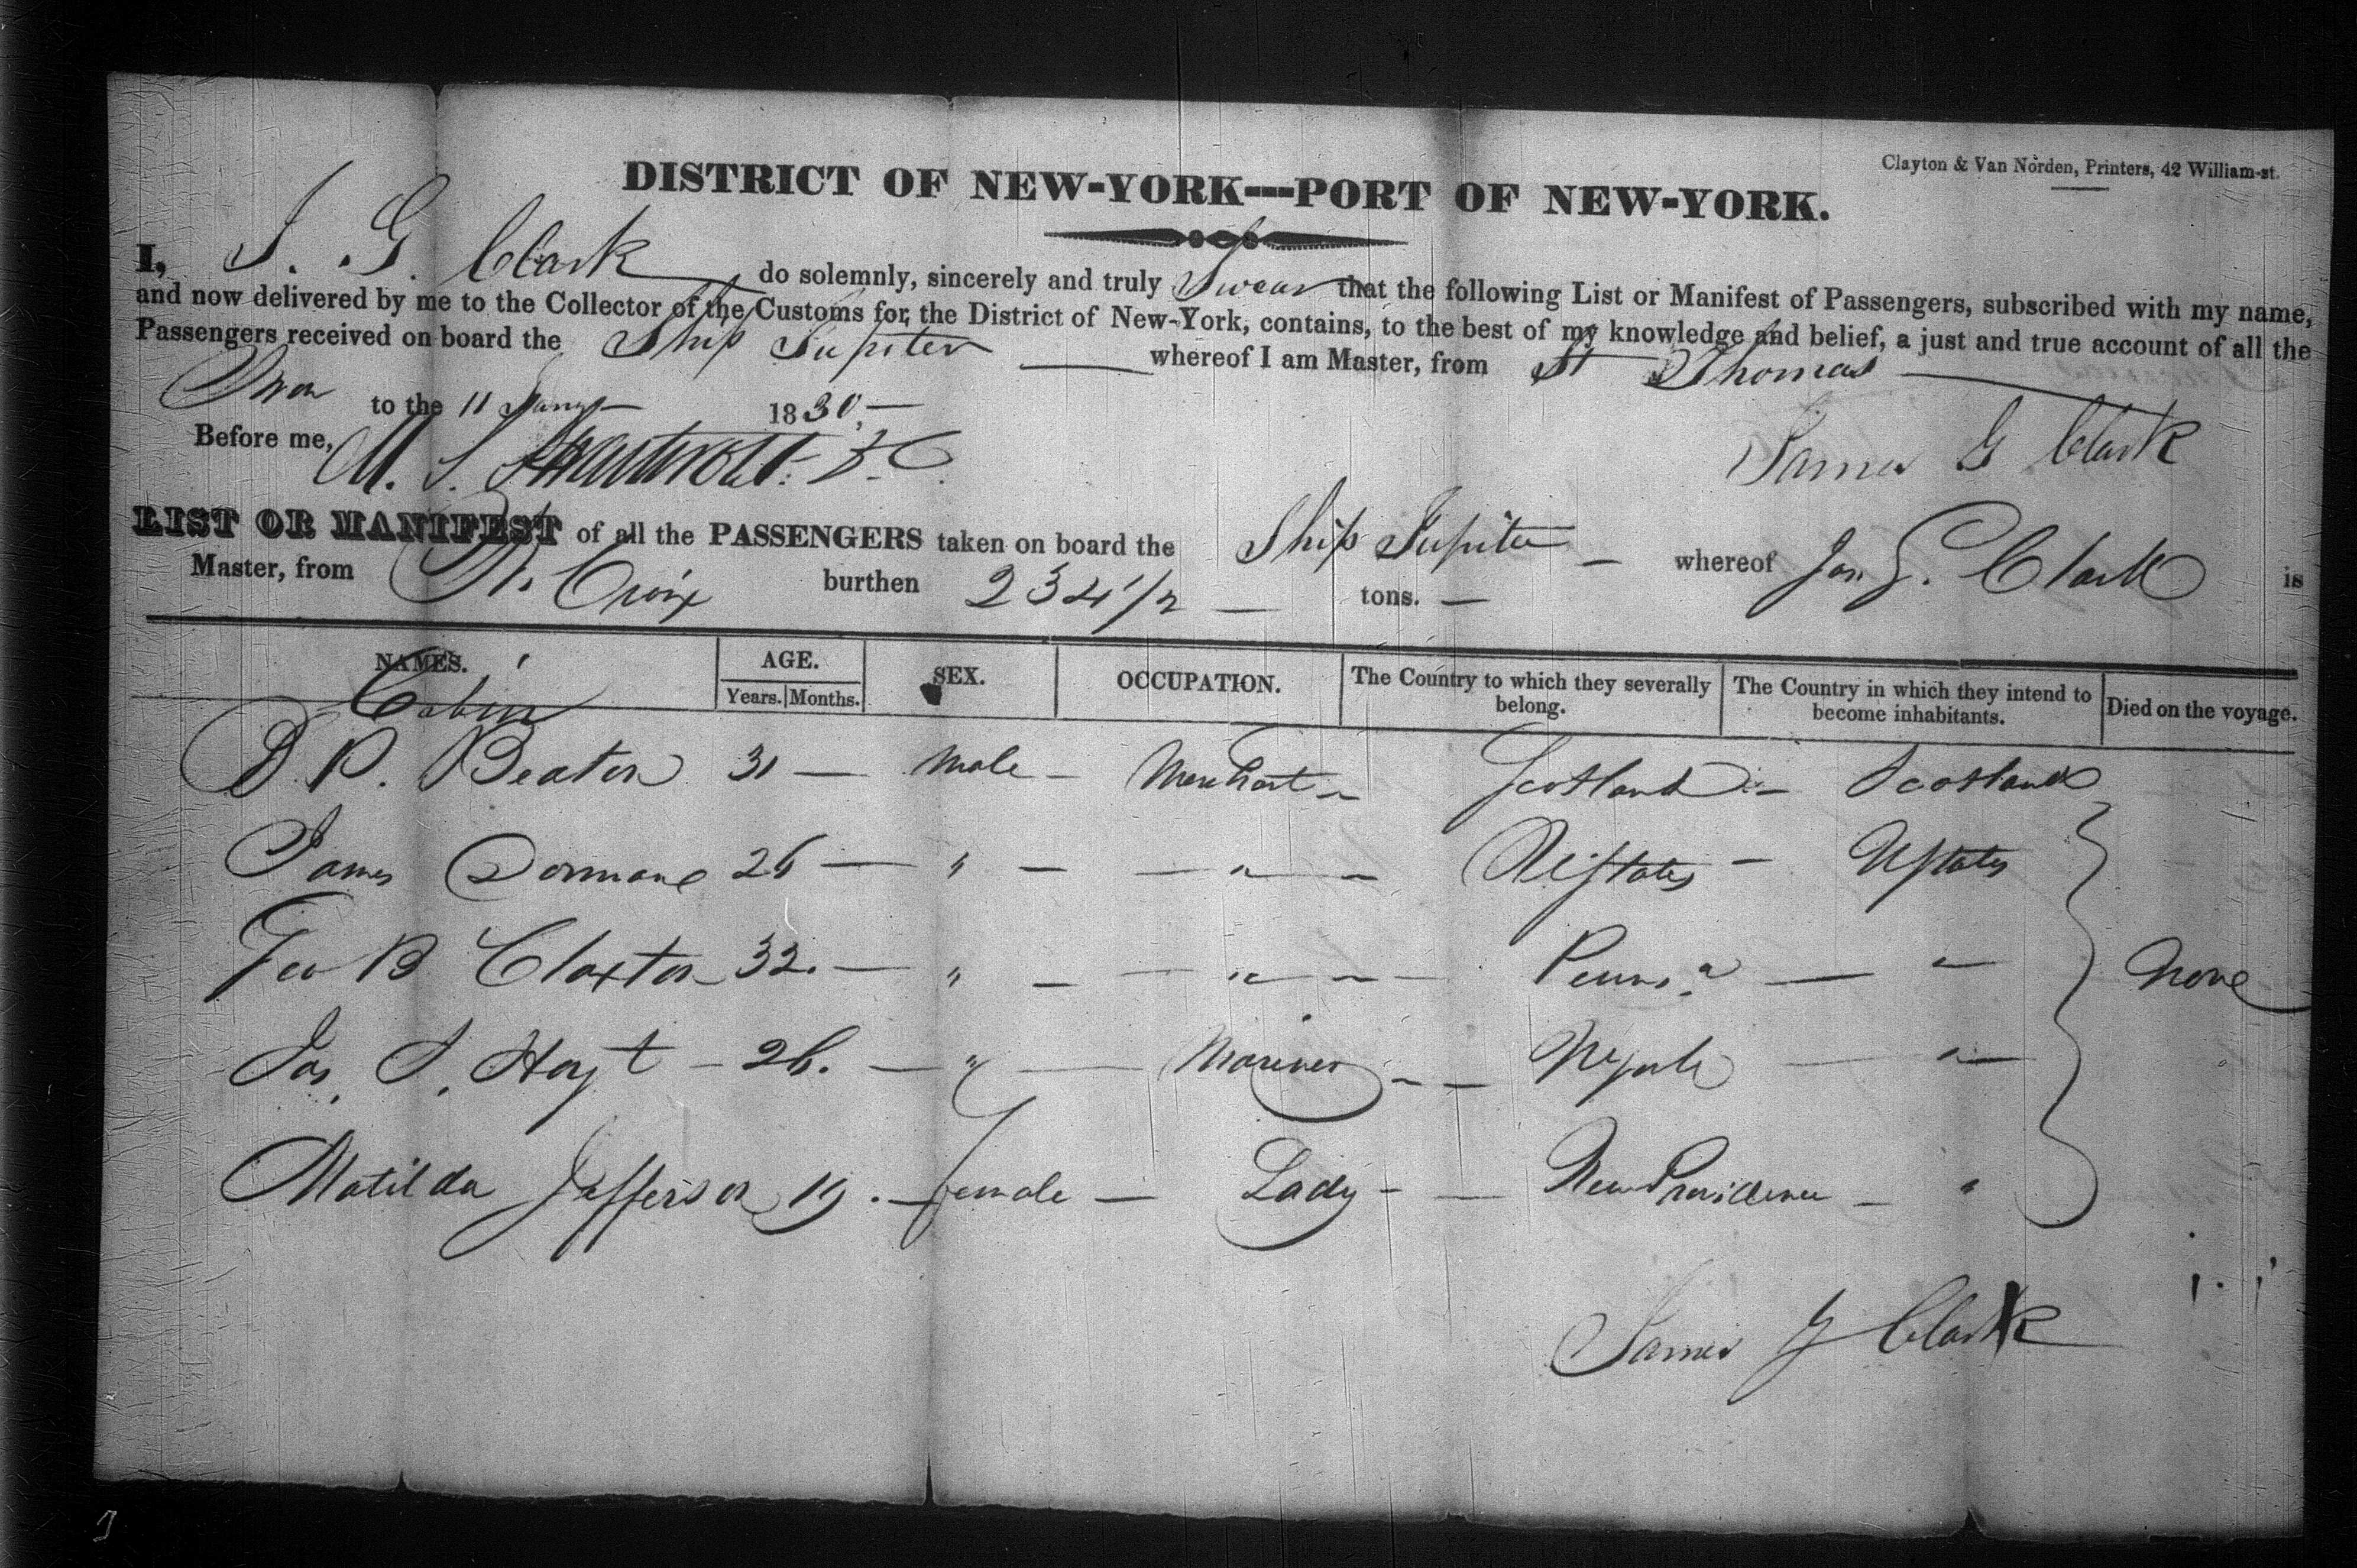 Clayton & Van Norden, Printers, 42 William-st.
DISTRICT OF NEW-YORK---PORT OF NEW-YORK.
I, J. G. Clark do solemnly, sincerely and truly Swear that the following List or Manifest of Passengers, subscribed with my name,
and now delivered by me to the Collector of the Customs for the District of New-York, contains, to the best of my knowledge and belief, a just and true account of all the
Passengers received on board the Ship Jupiter whereof I am Master, from St Thomas
Sworn to the 11 Jany 1830.
Before me, M. S. Swartwout. D. C. James G Clark
LIST OR MANIFEST of all the PASSENGERS taken on board the Ship Jupiter whereof Jas. G. Clark is
Master, from St. Croix burthen 234 1/2 tons.
NAMES. AGE. Years. Months. SEX. OCCUPATION. The Country to which they severally belong. The Country in which they intend to become inhabitants. Died on the voyage.
Cabin
D. P. Beaton 31 — Male — Merchant — Scotland — Scotland
James Dormane 26 — " — — " — Ustates — Ustates
Geo B Claxton 32. — " — — " — — Penns.a — "
Jas. S. Hoyt — 26. — " — Mariner — — NYork — "
None
Matilda Jefferson 19. — female — Lady — — New Providence — "
James G Clark